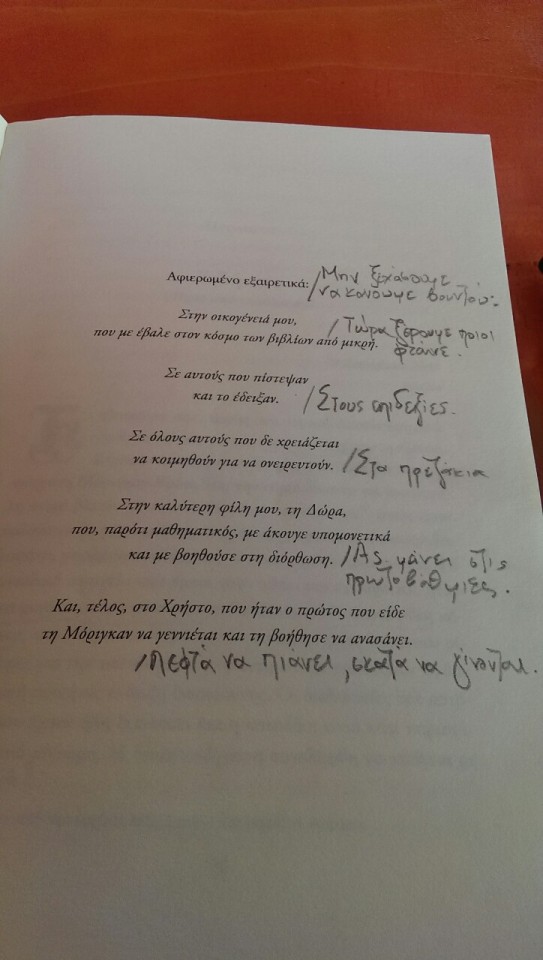 Αφιερωμένο εξαιρετικά: /Μην ξεχάσουμε
να κάνουμε βουντού:
Στην οικογένειά μου, /Τώρα ξέρουμε ποιοι
που με έβαλε στον κόσμο των βιβλίων από μικρή. φταίνε.
Σε αυτούς που πίστεψαν
και το έδειξαν. /Στους επιδεξιες.
Σε όλους αυτούς που δε χρειάζεται
να κοιμηθούν για να ονειρευτούν. /Στα πρεζάκια
Στην καλύτερη φίλη μου, τη Δώρα,
που, παρότι μαθηματικός, με άκουγε υπομονετικά
και με βοηθούσε στη διόρθωση. /Ας μάνει στις
πρωτοβάθμιες.
Και, τέλος, στο Χρήστο, που ήταν ο πρώτος που είδε
τη Μόριγκαν να γεννιέται και τη βοήθησε να ανασάνει.
/Λεφτά να πιάνει, σκατά να γίνονται.